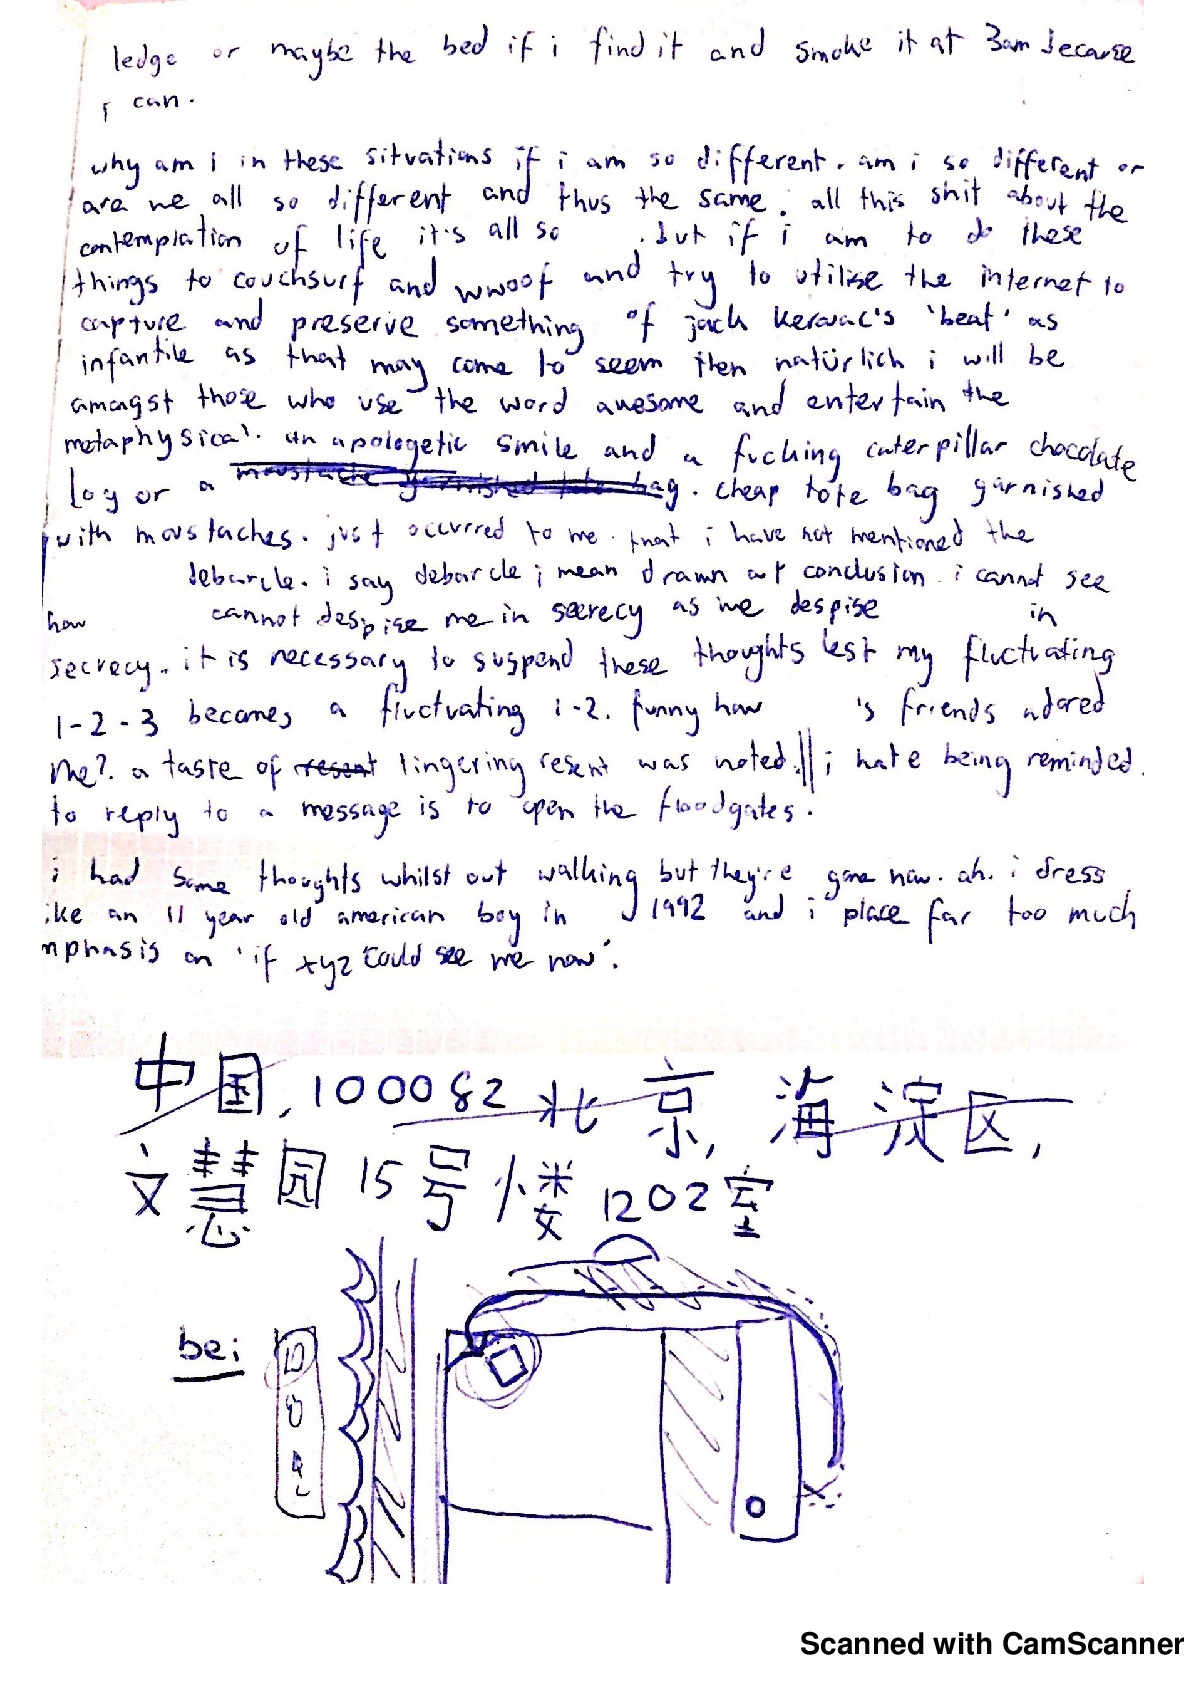 ledge or maybe the bed if i find it and smoke it at 3am because
i can.
why am i in these situations if i am so different. am i so different or
are we all so different and thus the same. all this shit about the
contemplation of life it's all so . but if i am to do these
things to couchsurf and wwoof and try to utilise the internet to
capture and preserve something of jack kerouac's 'beat' as
infantile as that may come to seem then natürlich i will be
amongst those who use the word awesome and entertain the
metaphysical. an apologetic smile and a fucking caterpillar chocolate
log or a moustache garnished tote bag. cheap tote bag garnished
with moustaches. just occurred to me that i have not mentioned the
debarcle. i say debarcle i mean drawn out conclusion. i cannot see
how cannot despise me in secrecy as we despise in
secrecy. it is necessary to suspend these thoughts lest my fluctuating
1-2-3 becomes a fluctuating 1-2. funny how 's friends adored
me?. a taste of resent lingering resent was noted. || i hate being reminded.
to reply to a message is to open the floodgates.
i had some thoughts whilst out walking but they're gone now. ah. i dress
ike an 11 year old american boy in 1992 and i place far too much
mphasis on 'if xyz could see me now'.
中国, 100082 北京, 海淀区,
文慧园 15号楼 1202室
bei
Scanned with CamScanner